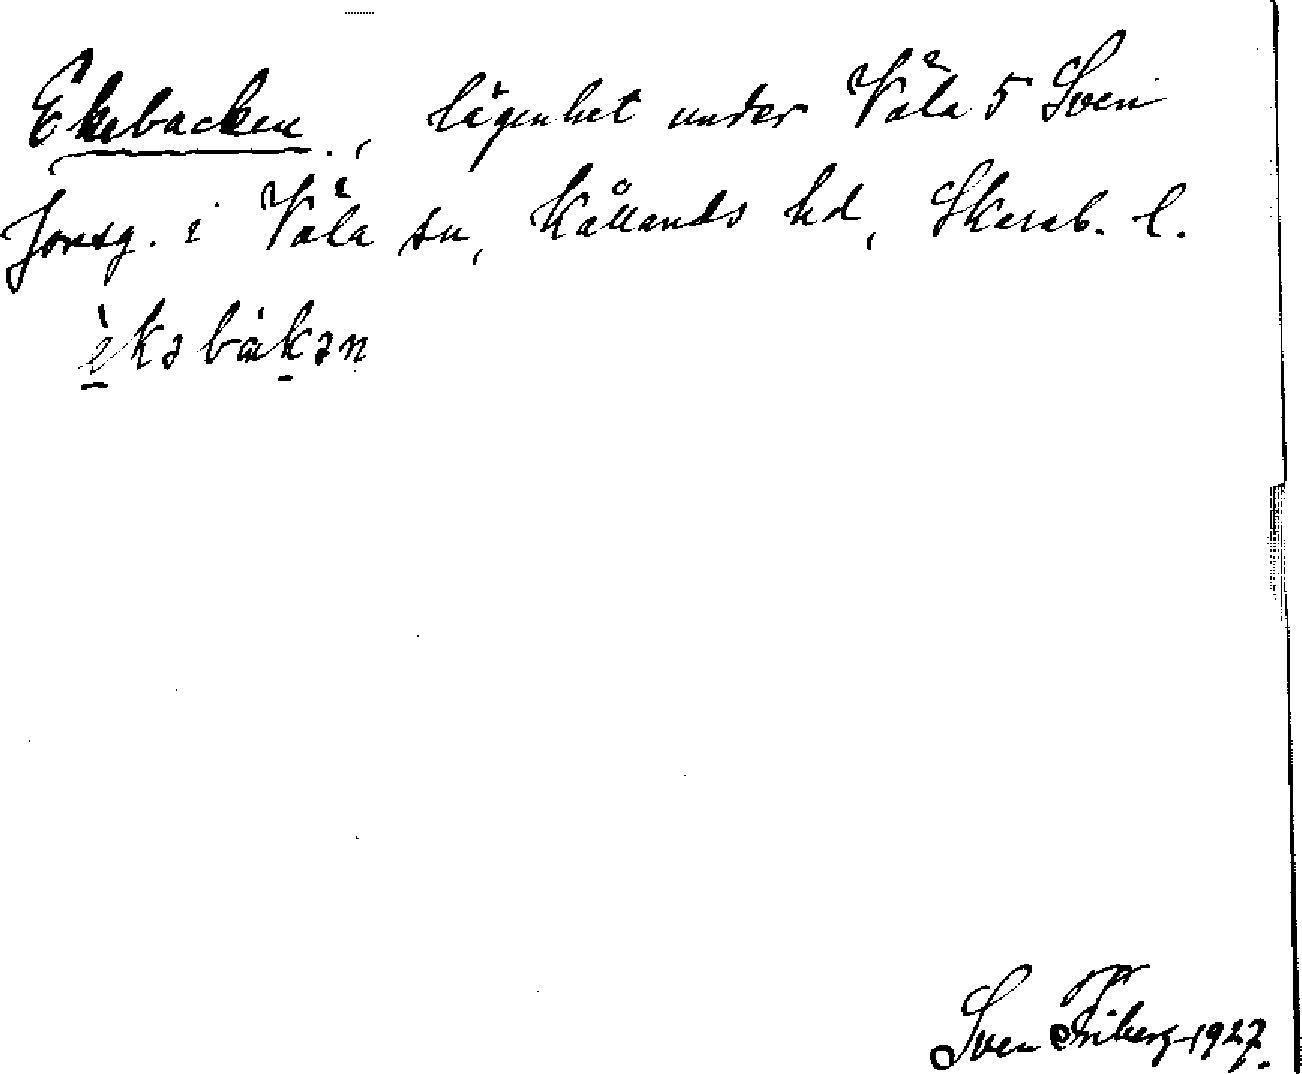 Ekebacken., lägenhet under Våla 5 Sven
Jonsg. i Våla sn, Kållands hd, Skarab. l.
èkəbàkən
Sven Friberg 1927.